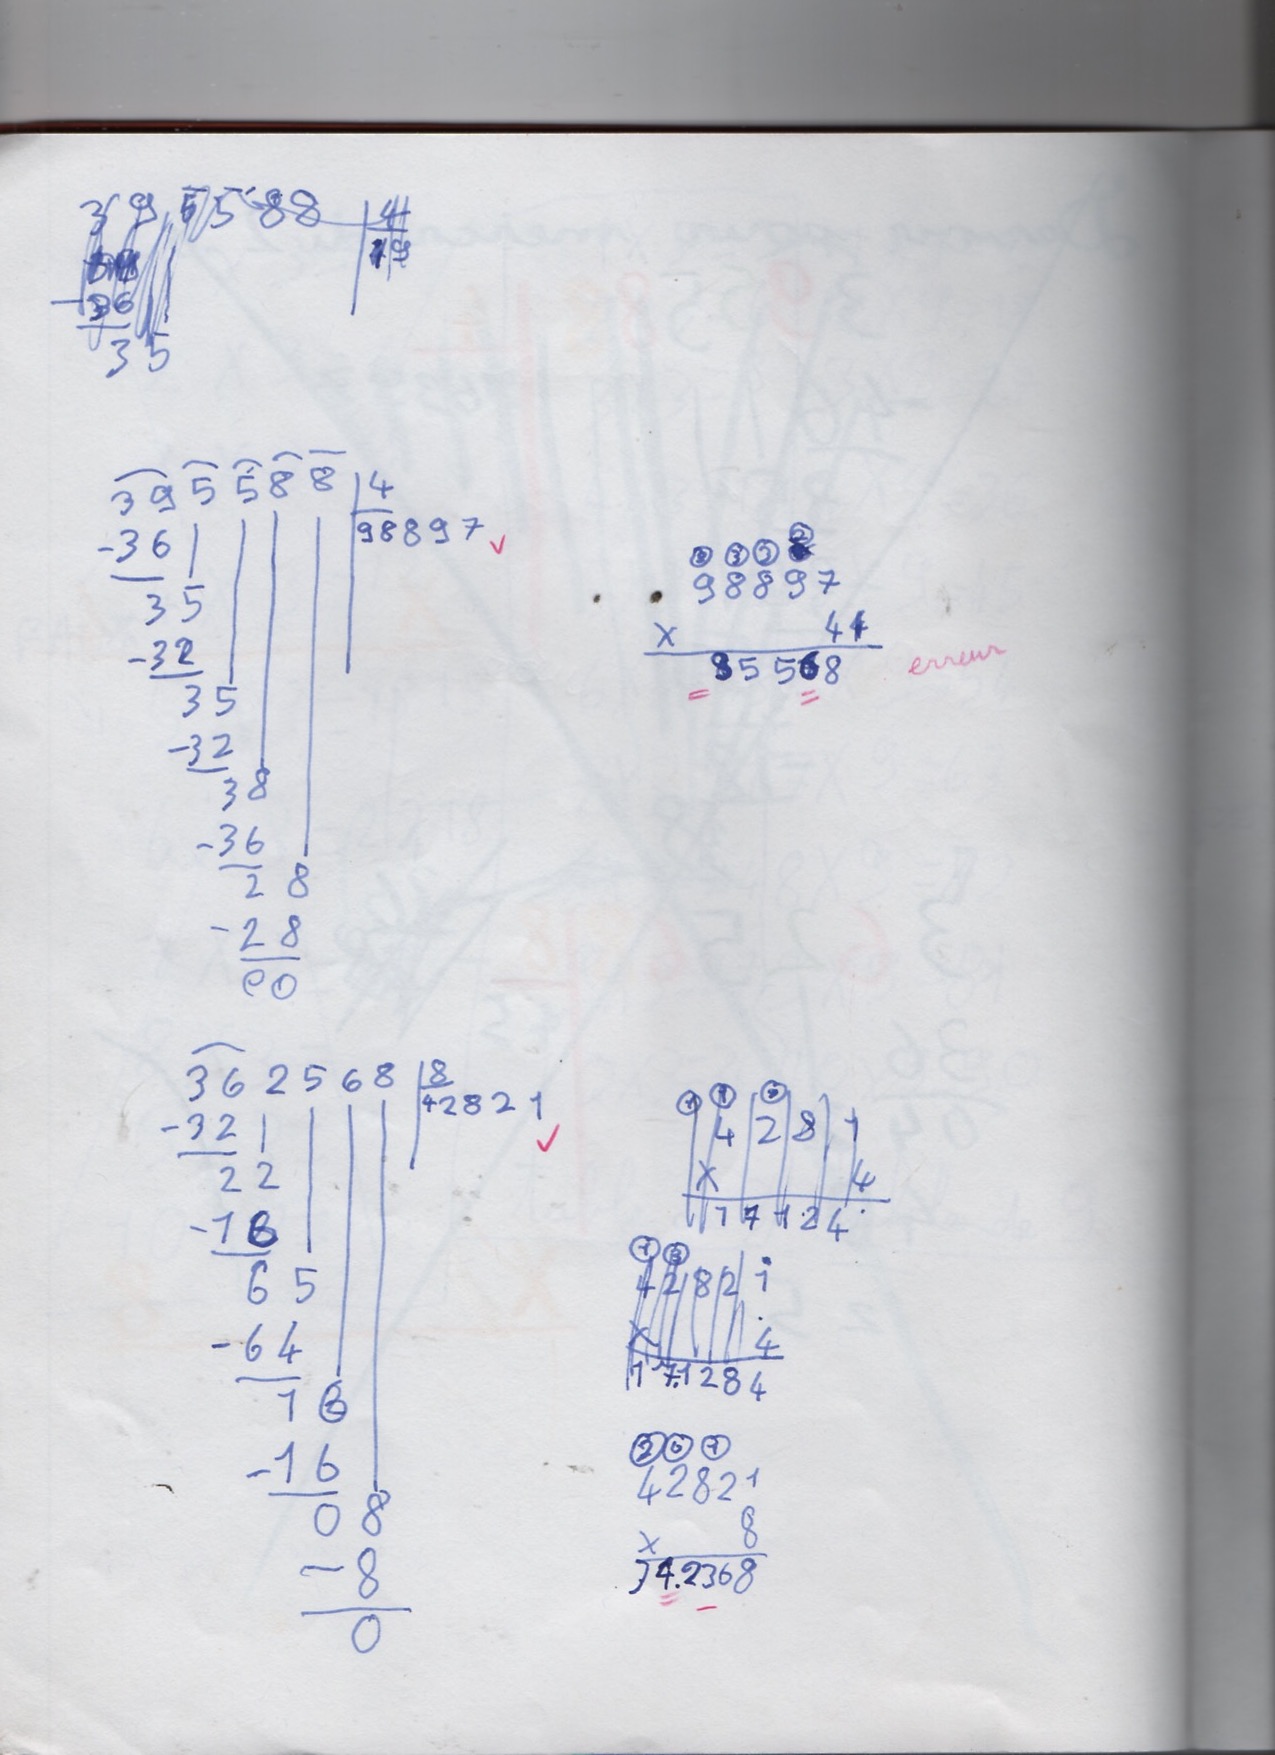 39 5588 4
19
-36
35
395588 4
-36 98897
35
-32
35
-32
38
-36
28
-28
00
98897
x 4
85568 erreur
362568 8
-32 42821
22
-16
65
-64
16
-16
08
-8
0
4281
x 4
17124
42821
x 4
171284
42821
x 8
342368